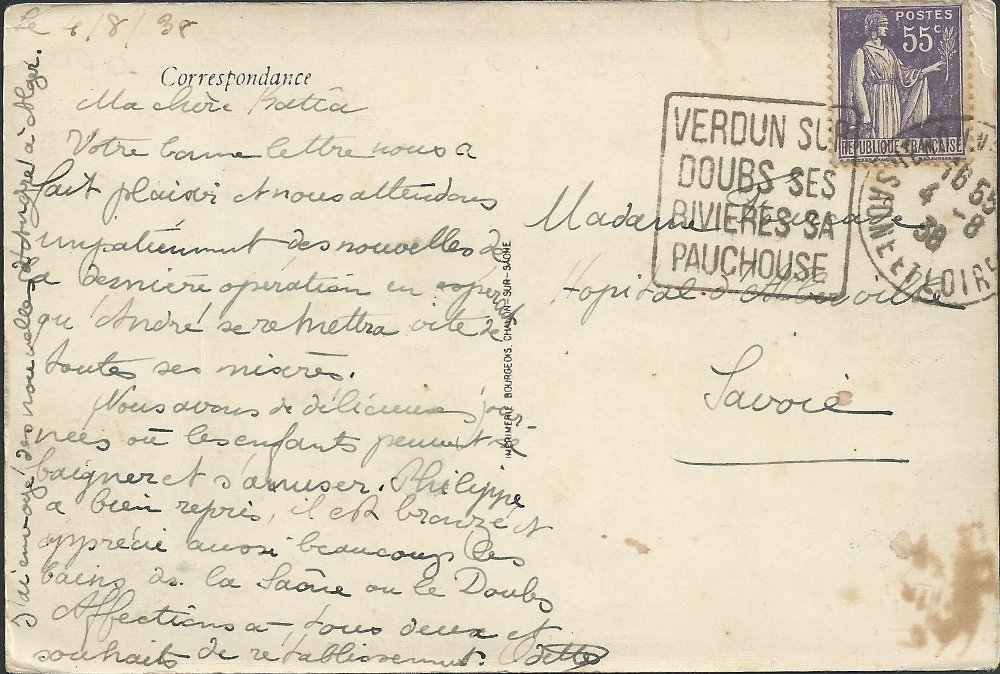 le 4/8/38
Correspondance
Ma chère Katia
Votre bonne lettre nous a
fait plaisir et nous attendons
impatiemment des nouvelles de
la dernière opération en espérant
qu'André se remettra vite de
toutes ses misères.
Nous avons de délicieuses jour-
nées où les enfants peuvent se
baigner et s'amuser. Philippe
a bien repris, il est bronzé et
apprécie aussi beaucoup les
bains ds la Saône ou le Doubs
Affections à tous deux et
souhaits de rétablissement. Odette
J'ai envoyé des nouvelles d'André à Alger.
IMPRIMERIE BOURGEOIS, CHALON-SUR-SAÔNE
POSTES
55c
REPUBLIQUE FRANÇAISE
VERDUN SUR
DOUBS SES
RIVIERES SA
PAUCHOUSE
16 55
4 -8
38
SAONE ET LOIRE
Madame
Hopital d'Albertville
Savoie